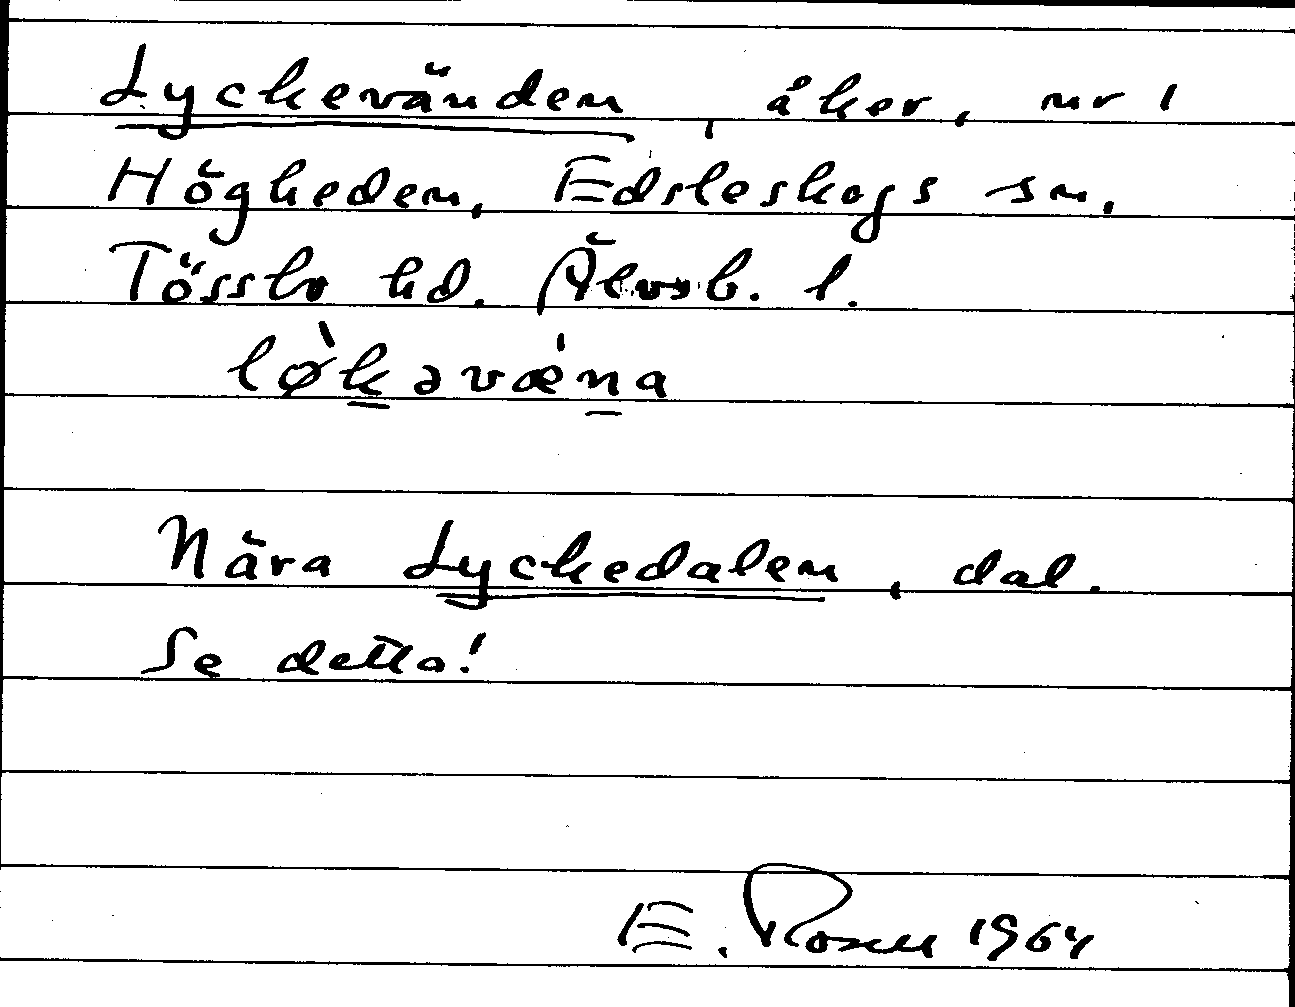 Lyckevänden, åker, nr 1
Högheden, Edsleskogs sn.
Tössbo hd. Älvsb. l.
lø̀kəvæ´na
Nära Lyckedalen, dal.
Se detta!
E. Rosell 1964